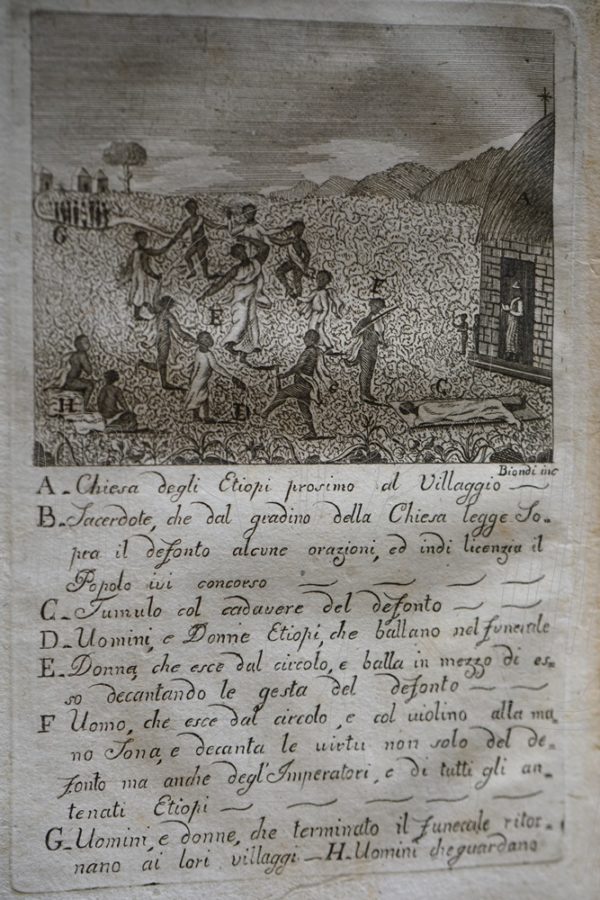 A
G
F
E
C
H
D
e
Biondi inc
A_Chiesa degli Etiopi prosimo al Villaggio
B_Sacerdote, che dal gradino della Chiesa legge So=
pra il defonto alcune orazioni, ed indi licenzia il
Popolo ivi concorso
C_Tumulo col cadavere del defonto
D_Uomini, e Donne Etiopi, che ballano nel funerale
E_Donna, che esce dal circolo, e balla in mezzo di es=
so decantando le gesta del defonto
F Uomo, che esce dal circolo, e col violino alla ma=
no Sona, e decanta le virtu non solo del de=
fonto ma anche degl'Imperatori, e di tutti gli an=
tenati Etiopi
G_Uomini, e donne, che terminato il funerale ritor=
nano ai lori villaggi _ H_Uomini che guardano